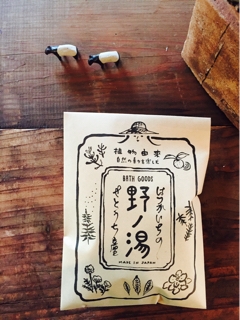 植物由来
自然の香りを楽しむ
BATH GOODS
はつかいちの
野ノ湯
せとうち産
MADE IN JAPAN